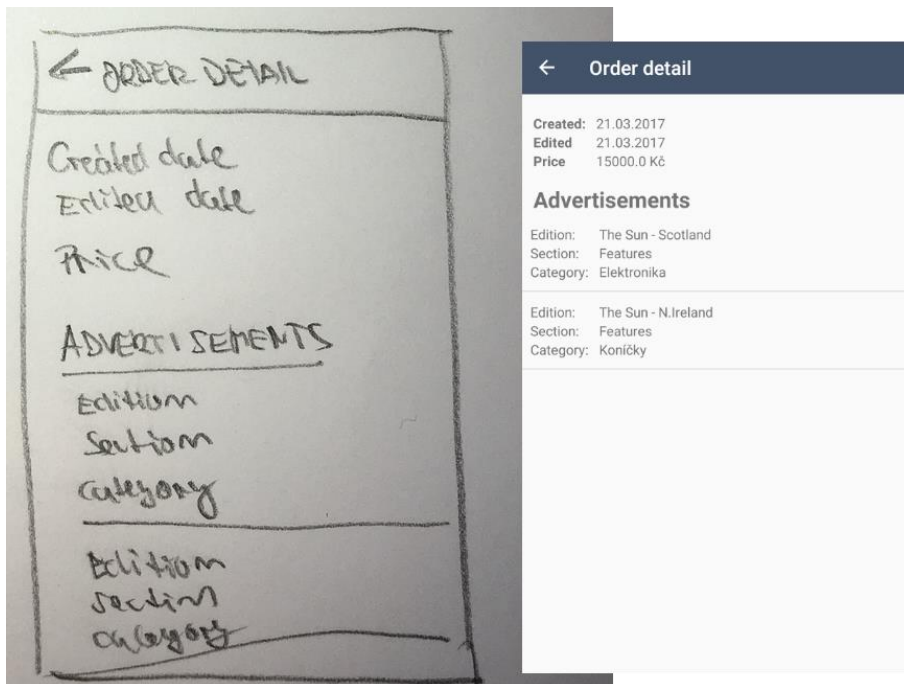 ← ORDER DETAIL
Created date
Edited date
Price
ADVERTISEMENTS
Edition
Section
Category
Edition
Section
Category
← Order detail
Created: 21.03.2017
Edited 21.03.2017
Price 15000.0 Kč
Advertisements
Edition: The Sun - Scotland
Section: Features
Category: Elektronika
Edition: The Sun - N.Ireland
Section: Features
Category: Koníčky